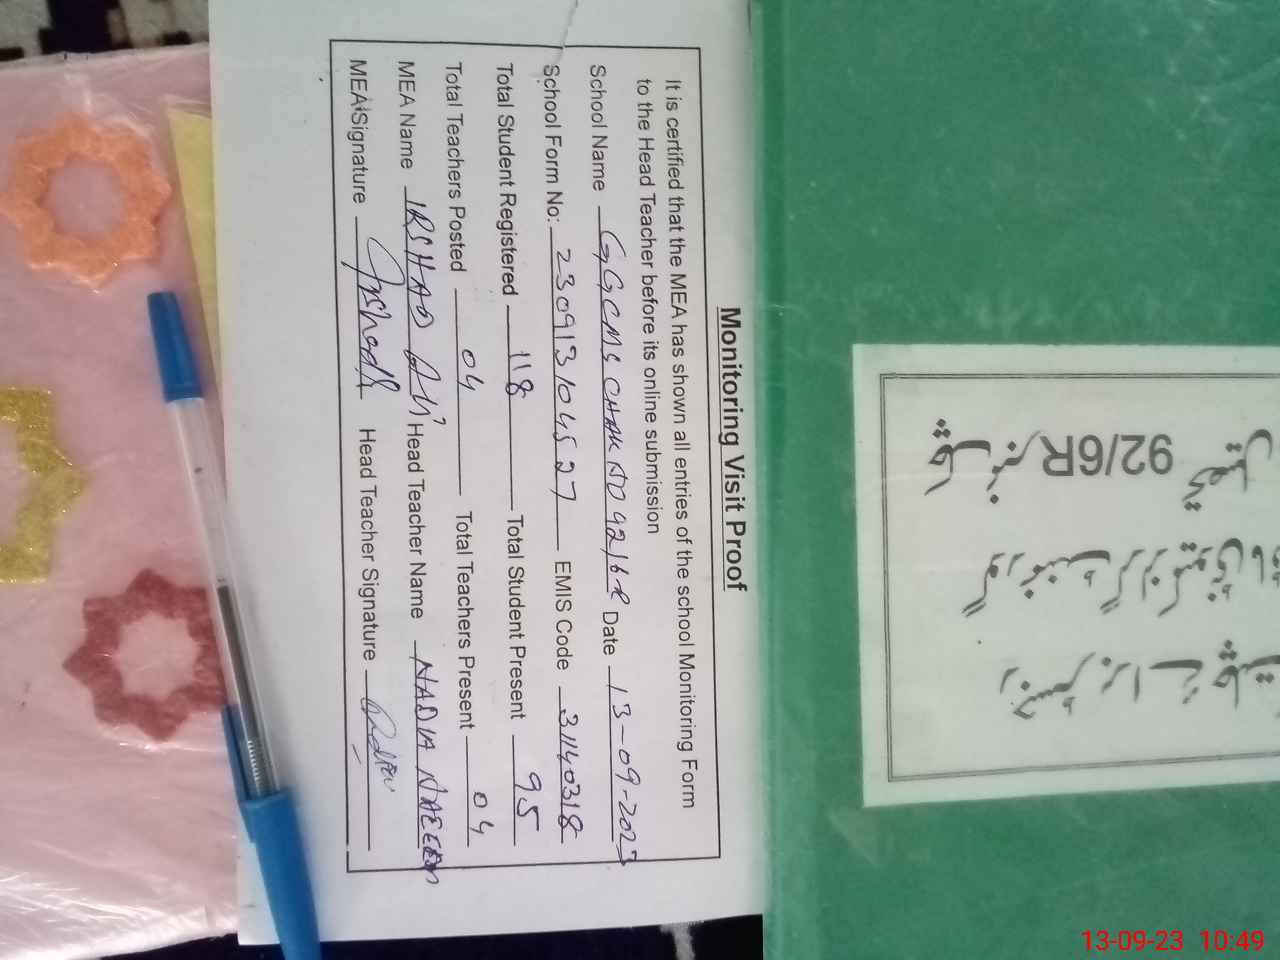 Monitoring Visit Proof
It is certified that the MEA has shown all entries of the school Monitoring Form
to the Head Teacher before its online submission
School Name GGCMS CHAK NO 92/6R Date 13-09-2023
School Form No: 230913104527 EMIS Code 31140318
Total Student Registered 118 Total Student Present 95
Total Teachers Posted 04 Total Teachers Present 04
MEA Name IRSHAD Ali Head Teacher Name NADIA NAEEM
MEA Signature Irshad Head Teacher Signature
رجسٹر برائے
گورنمنٹ گرلز
چک نمبر 92/6R تحصیل
13-09-23 10:49